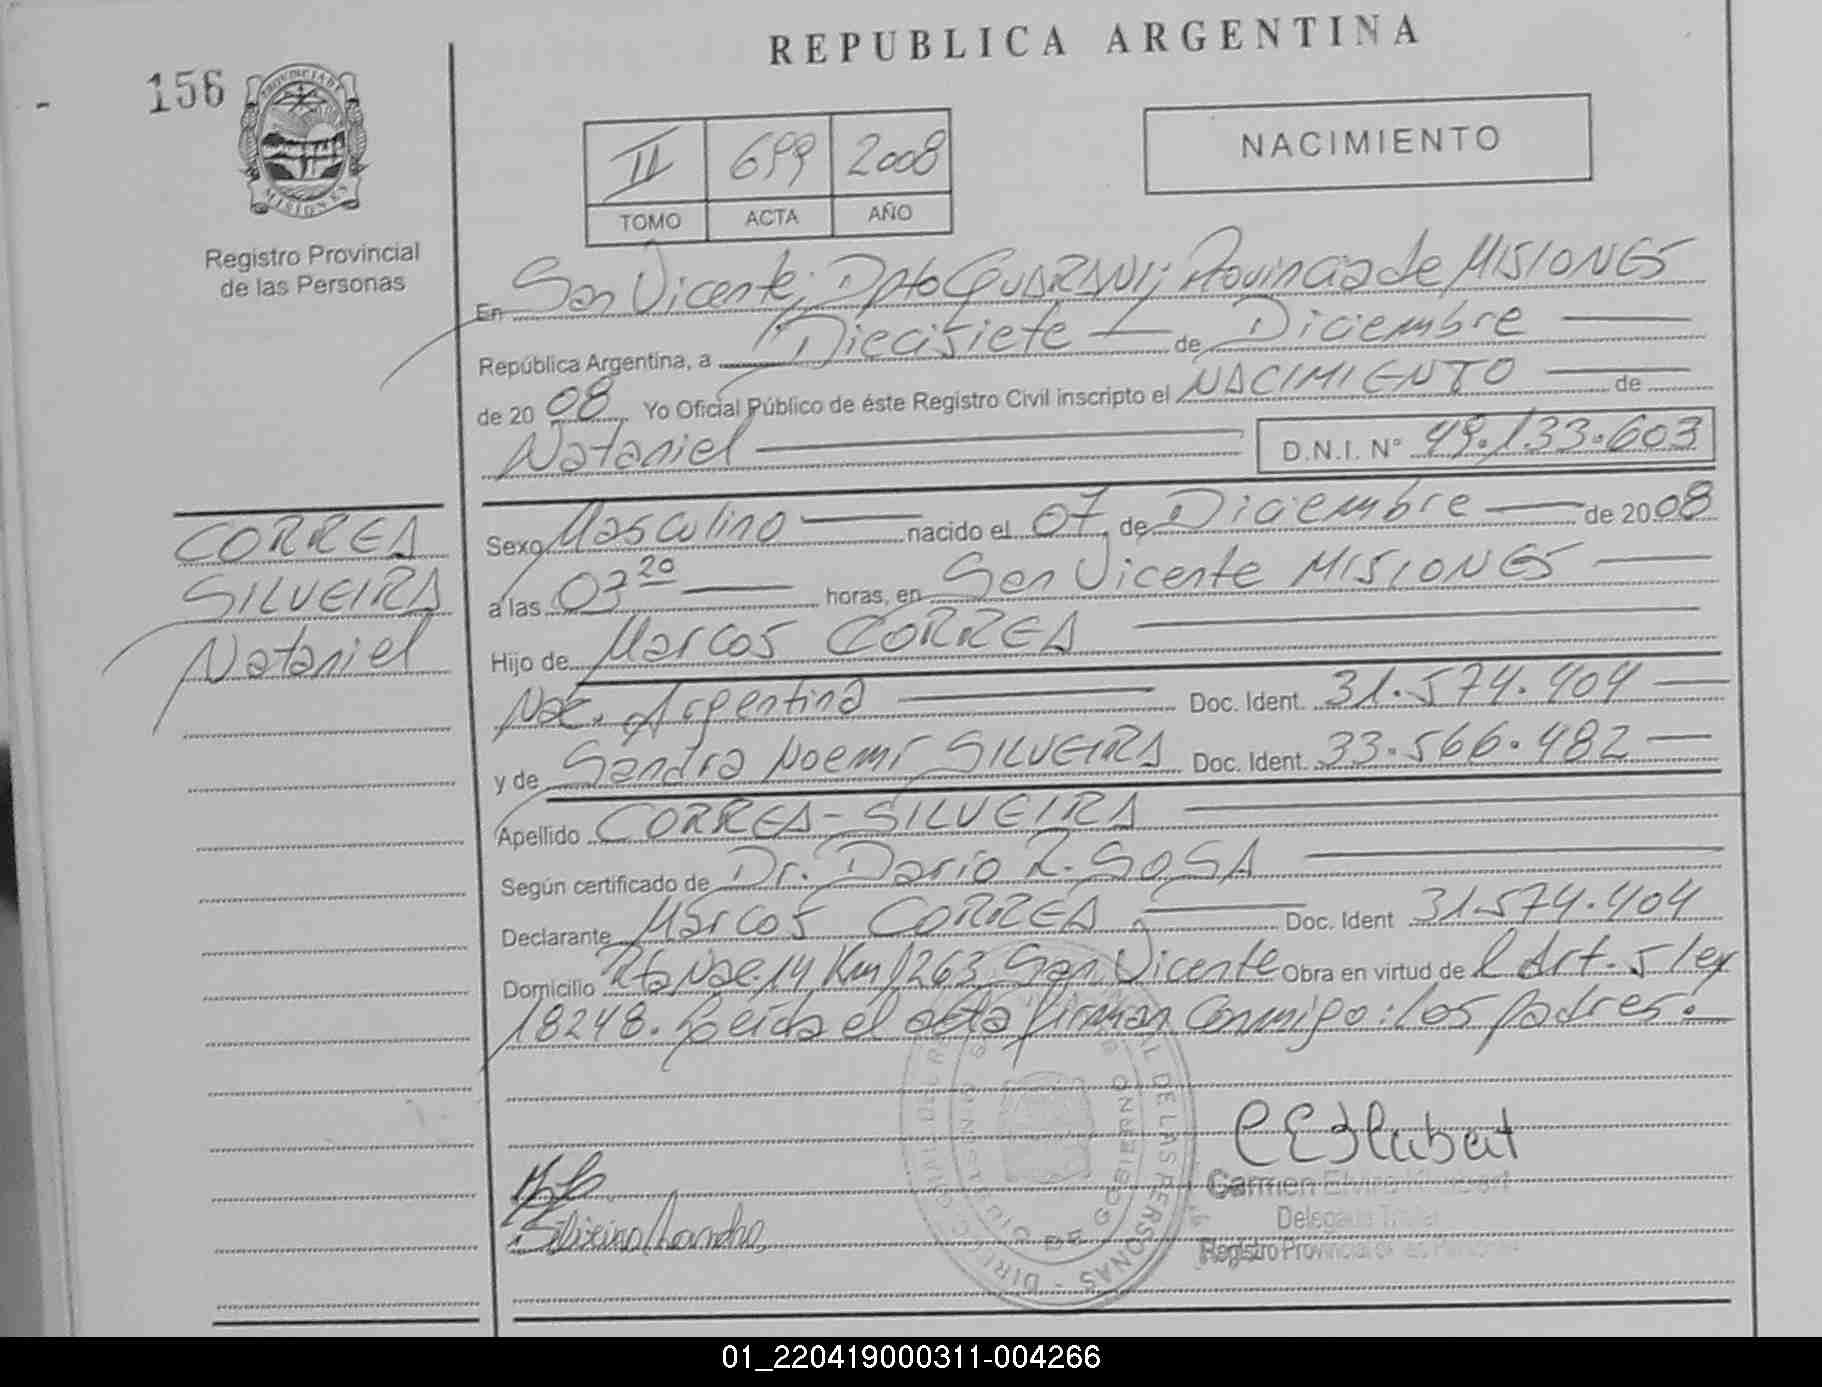 REPUBLICA ARGENTINA
156
PROVINCIA DE
MISIONES
Registro Provincial
de las Personas
II 699 2008
TOMO ACTA AÑO
NACIMIENTO
En San Vicente, Dpto GUARANI; Provincia de MISIONES
República Argentina, a Diecisiete de Diciembre
de 2008 Yo Oficial Público de éste Registro Civil inscripto el NACIMIENTO de
Nataniel D.N.I. Nº 49.133.603
CORREA
SILVEIRA
Nataniel
Sexo Masculino nacido el 07 de Diciembre de 2008
a las 03 20 horas, en San Vicente MISIONES
Hijo de Marcos CORREA
Nac. Argentina Doc. Ident. 31.574.404
y de Sandra Noemi SILVEIRA Doc. Ident. 33.566.482
Apellido CORREA-SILVEIRA
Según certificado de Dr. Dario R. SOSA
Declarante Marcos CORREA Doc. Ident 31.574.404
Domicilio Rta Nac. 14 Km 1263 San Vicente Obra en virtud de l Art. 5 ley
18248. Leida el acta firman conmigo: los padres.
Carmen Elvira
Delegada Titular
Registro Provincial de las Personas
DE LAS PERSONAS
01_220419000311-004266